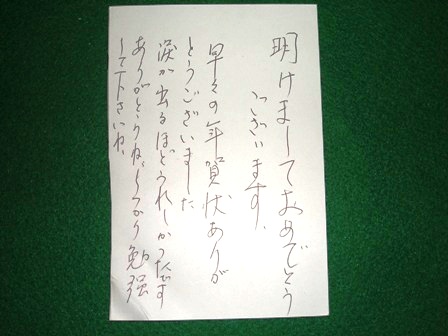 明けましておめでとう
ございます。
早々の年賀状ありが
とうございました
涙が出るほどうれしかったです
ありがとうね、しっかり勉強
して下さいね、